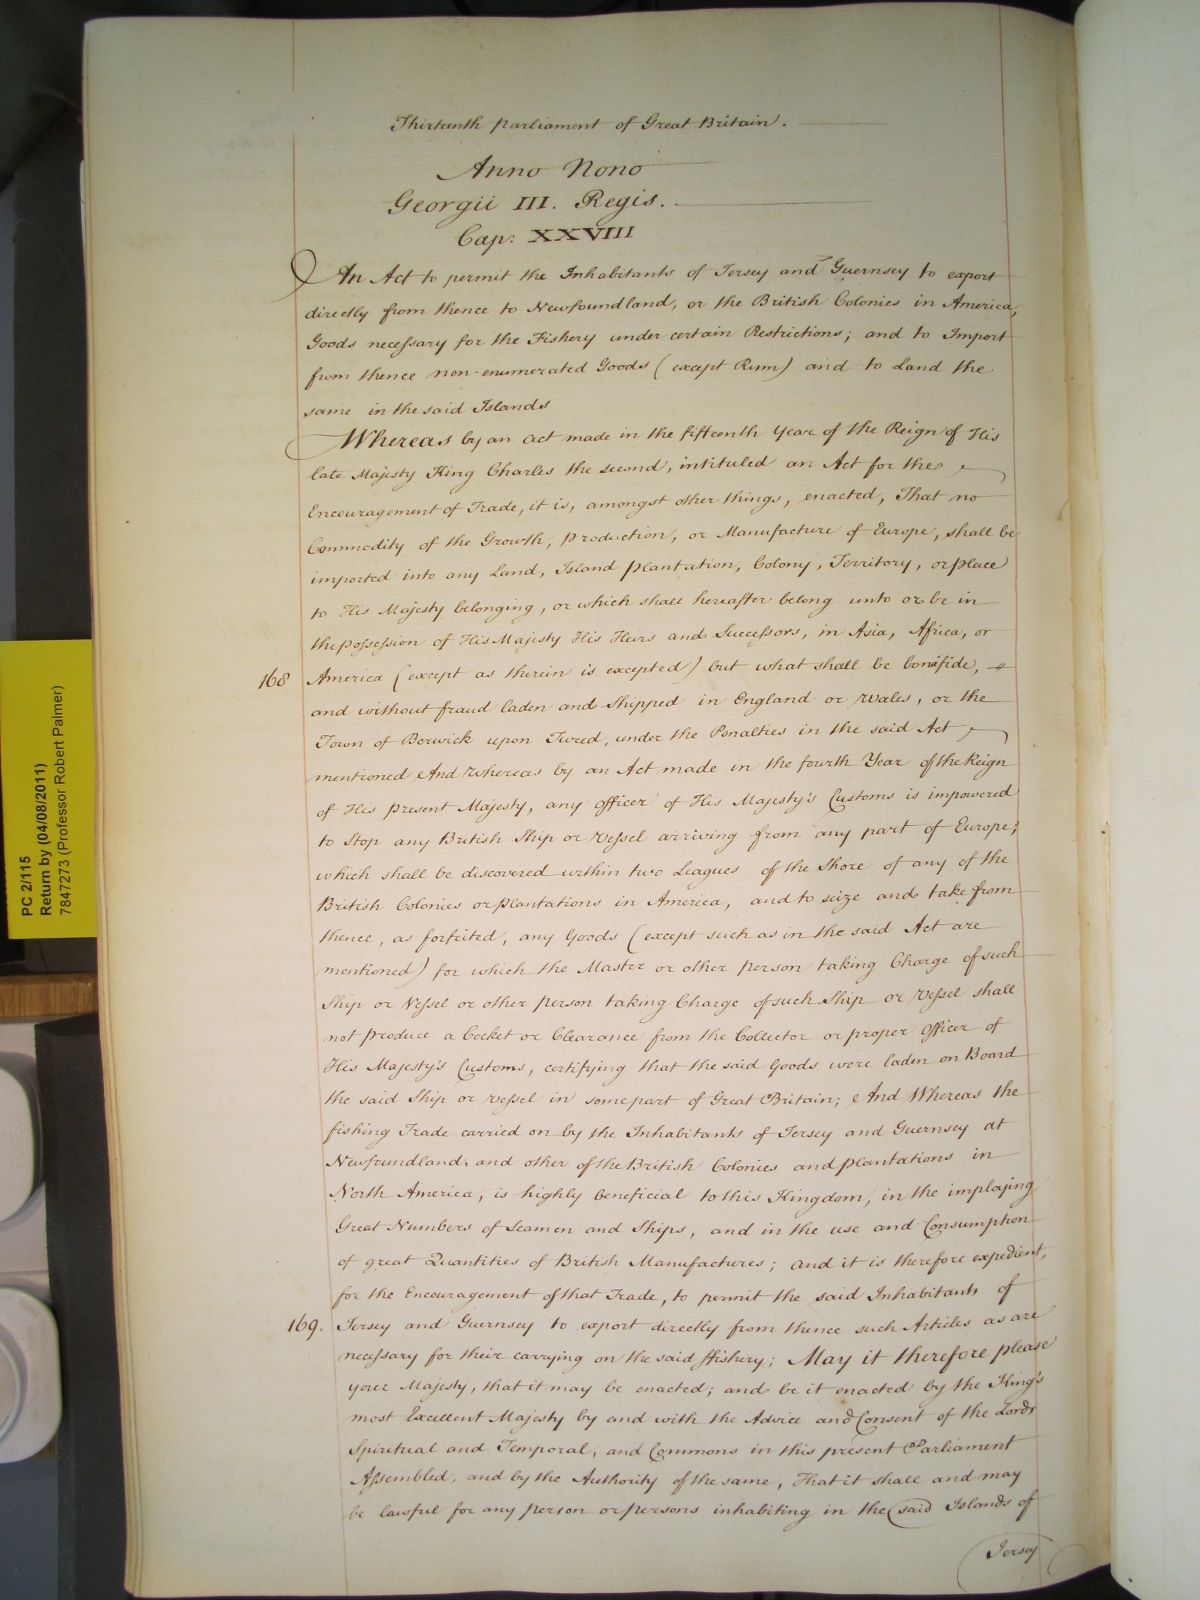 Thirteenth Parliament of Great Britain.
Anno Nono
Georgii III. Regis.
Cap: XXVIII
An Act to permit the Inhabitants of Jersey and Guernsey to export
directly from thence to Newfoundland, or the British Colonies in America,
Goods necessary for the Fishery under certain Restrictions; and to Import
from thence non-enumerated Goods (except Rum) and to Land the
same in the said Islands
Whereas by an act made in the fifteenth Year of the Reign of His
late Majesty King Charles the second, intituled an Act for the
Encouragement of Trade, it is, amongst other things, enacted, That no
Commodity of the Growth, Production, or Manufacture of Europe, shall be
imported into any Land, Island plantation, Colony, Territory, or place
to His Majesty belonging, or which shall hereafter belong unto or be in
the possession of His Majesty His Heirs and Successors, in Asia, Africa, or
168 America (except as therein is excepted) but what shall be bonâfide,
and without fraud laden and Shipped in England or Wales, or the
Town of Berwick upon Tweed, under the Penalties in the said Act
mentioned And whereas by an Act made in the fourth Year of the Reign
of His present Majesty, any officer of His Majesty's Customs is impowered
to Stop any British Ship or Vessel arriving from any part of Europe,
which shall be discovered within two Leagues of the Shore of any of the
British Colonies or plantations in America, and to seize and take from
thence, as forfeited, any Goods (except such as in the said Act are
mentioned) for which the Master or other person taking Charge of such
Ship or Vessel or other person taking Charge of such Ship or Vessel shall
not produce a Cocket or Clearance from the Collector or proper officer of
His Majesty's Customs, certifying that the said Goods were laden on Board
the said Ship or Vessel in some part of Great Britain; And Whereas the
fishing Trade carried on by the Inhabitants of Jersey and Guernsey at
Newfoundland, and other of the British Colonies and plantations in
North America, is highly beneficial to this Kingdom, in the imploying
Great Numbers of Seamen and Ships, and in the use and Consumption
of great Quantities of British Manufactures; and it is therefore expedient,
for the Encouragement of that Trade, to permit the said Inhabitants of
169. Jersey and Guernsey to export directly from thence such Articles as are
necessary for their carrying on the said ffishery; May it therefore please
your Majesty, that it may be enacted; and be it enacted by the King's
most Excellent Majesty by and with the Advice and Consent of the Lords
Spiritual and Temporal, and Commons in this present Parliament
Assembled, and by the Authority of the same, That it shall and may
be lawful for any person or persons inhabiting in the said Islands of
Jersey
PC 2/115
Return by (04/08/2011)
7847273 (Professor Robert Palmer)